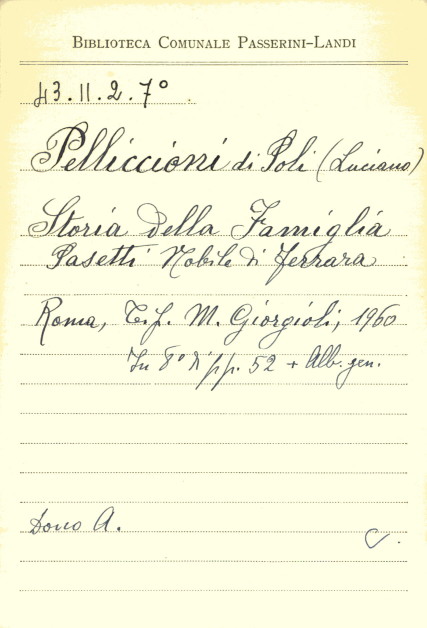 BIBLIOTECA COMUNALE PASSERINI-LANDI
43.II.2.7°
Pelliccioni di Poli (Luciano)
Storia della Famiglia
Pasetti Nobile di Ferrara
Roma, Tip. M. Giorgioli, 1960
In 8° di pp. 52 + Alb. gen.
Dono A.
C.